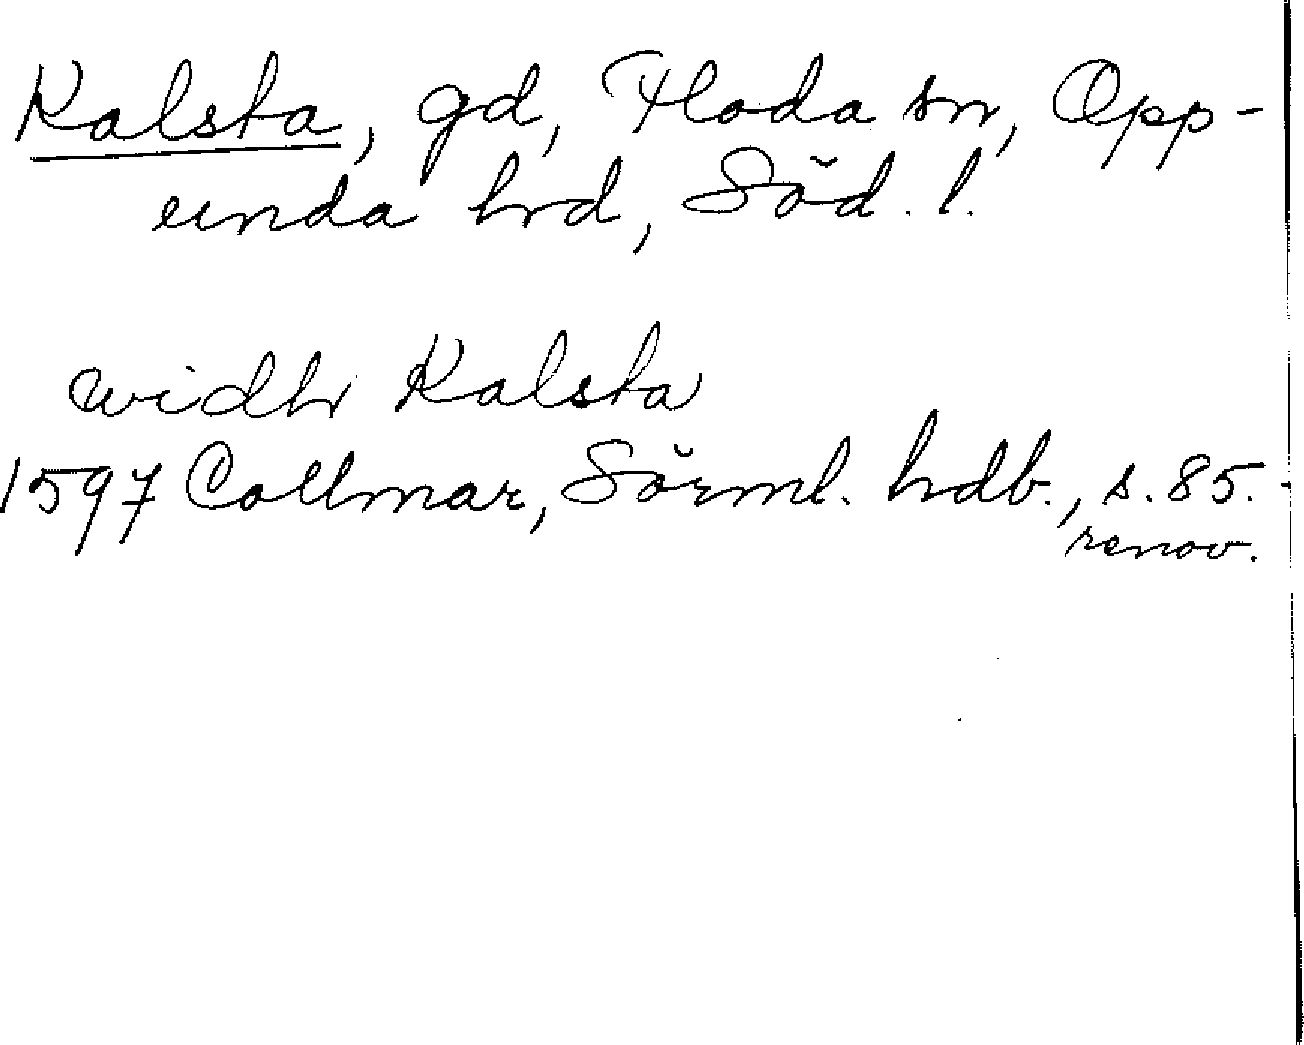 Kalsta, gd, Floda sn, Opp-
unda hrd, Söd. l.
widh Kalsta
1597 Collmar, Sörml. hdb., s. 85.
renov.